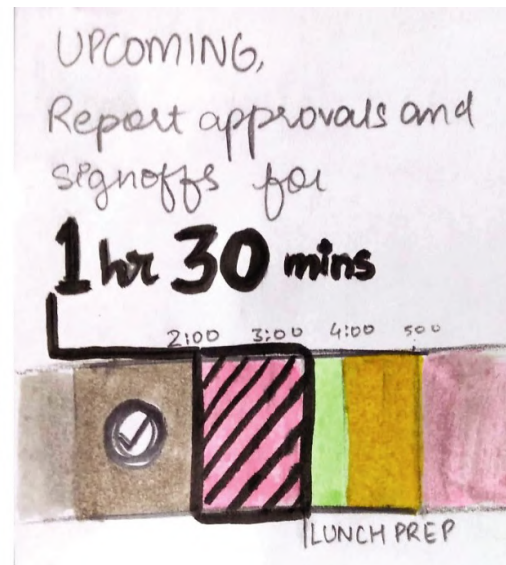 UPCOMING,
Report approvals and
signoffs for
1 hr 30 mins
2:00 3:00 4:00 500
LUNCH PREP